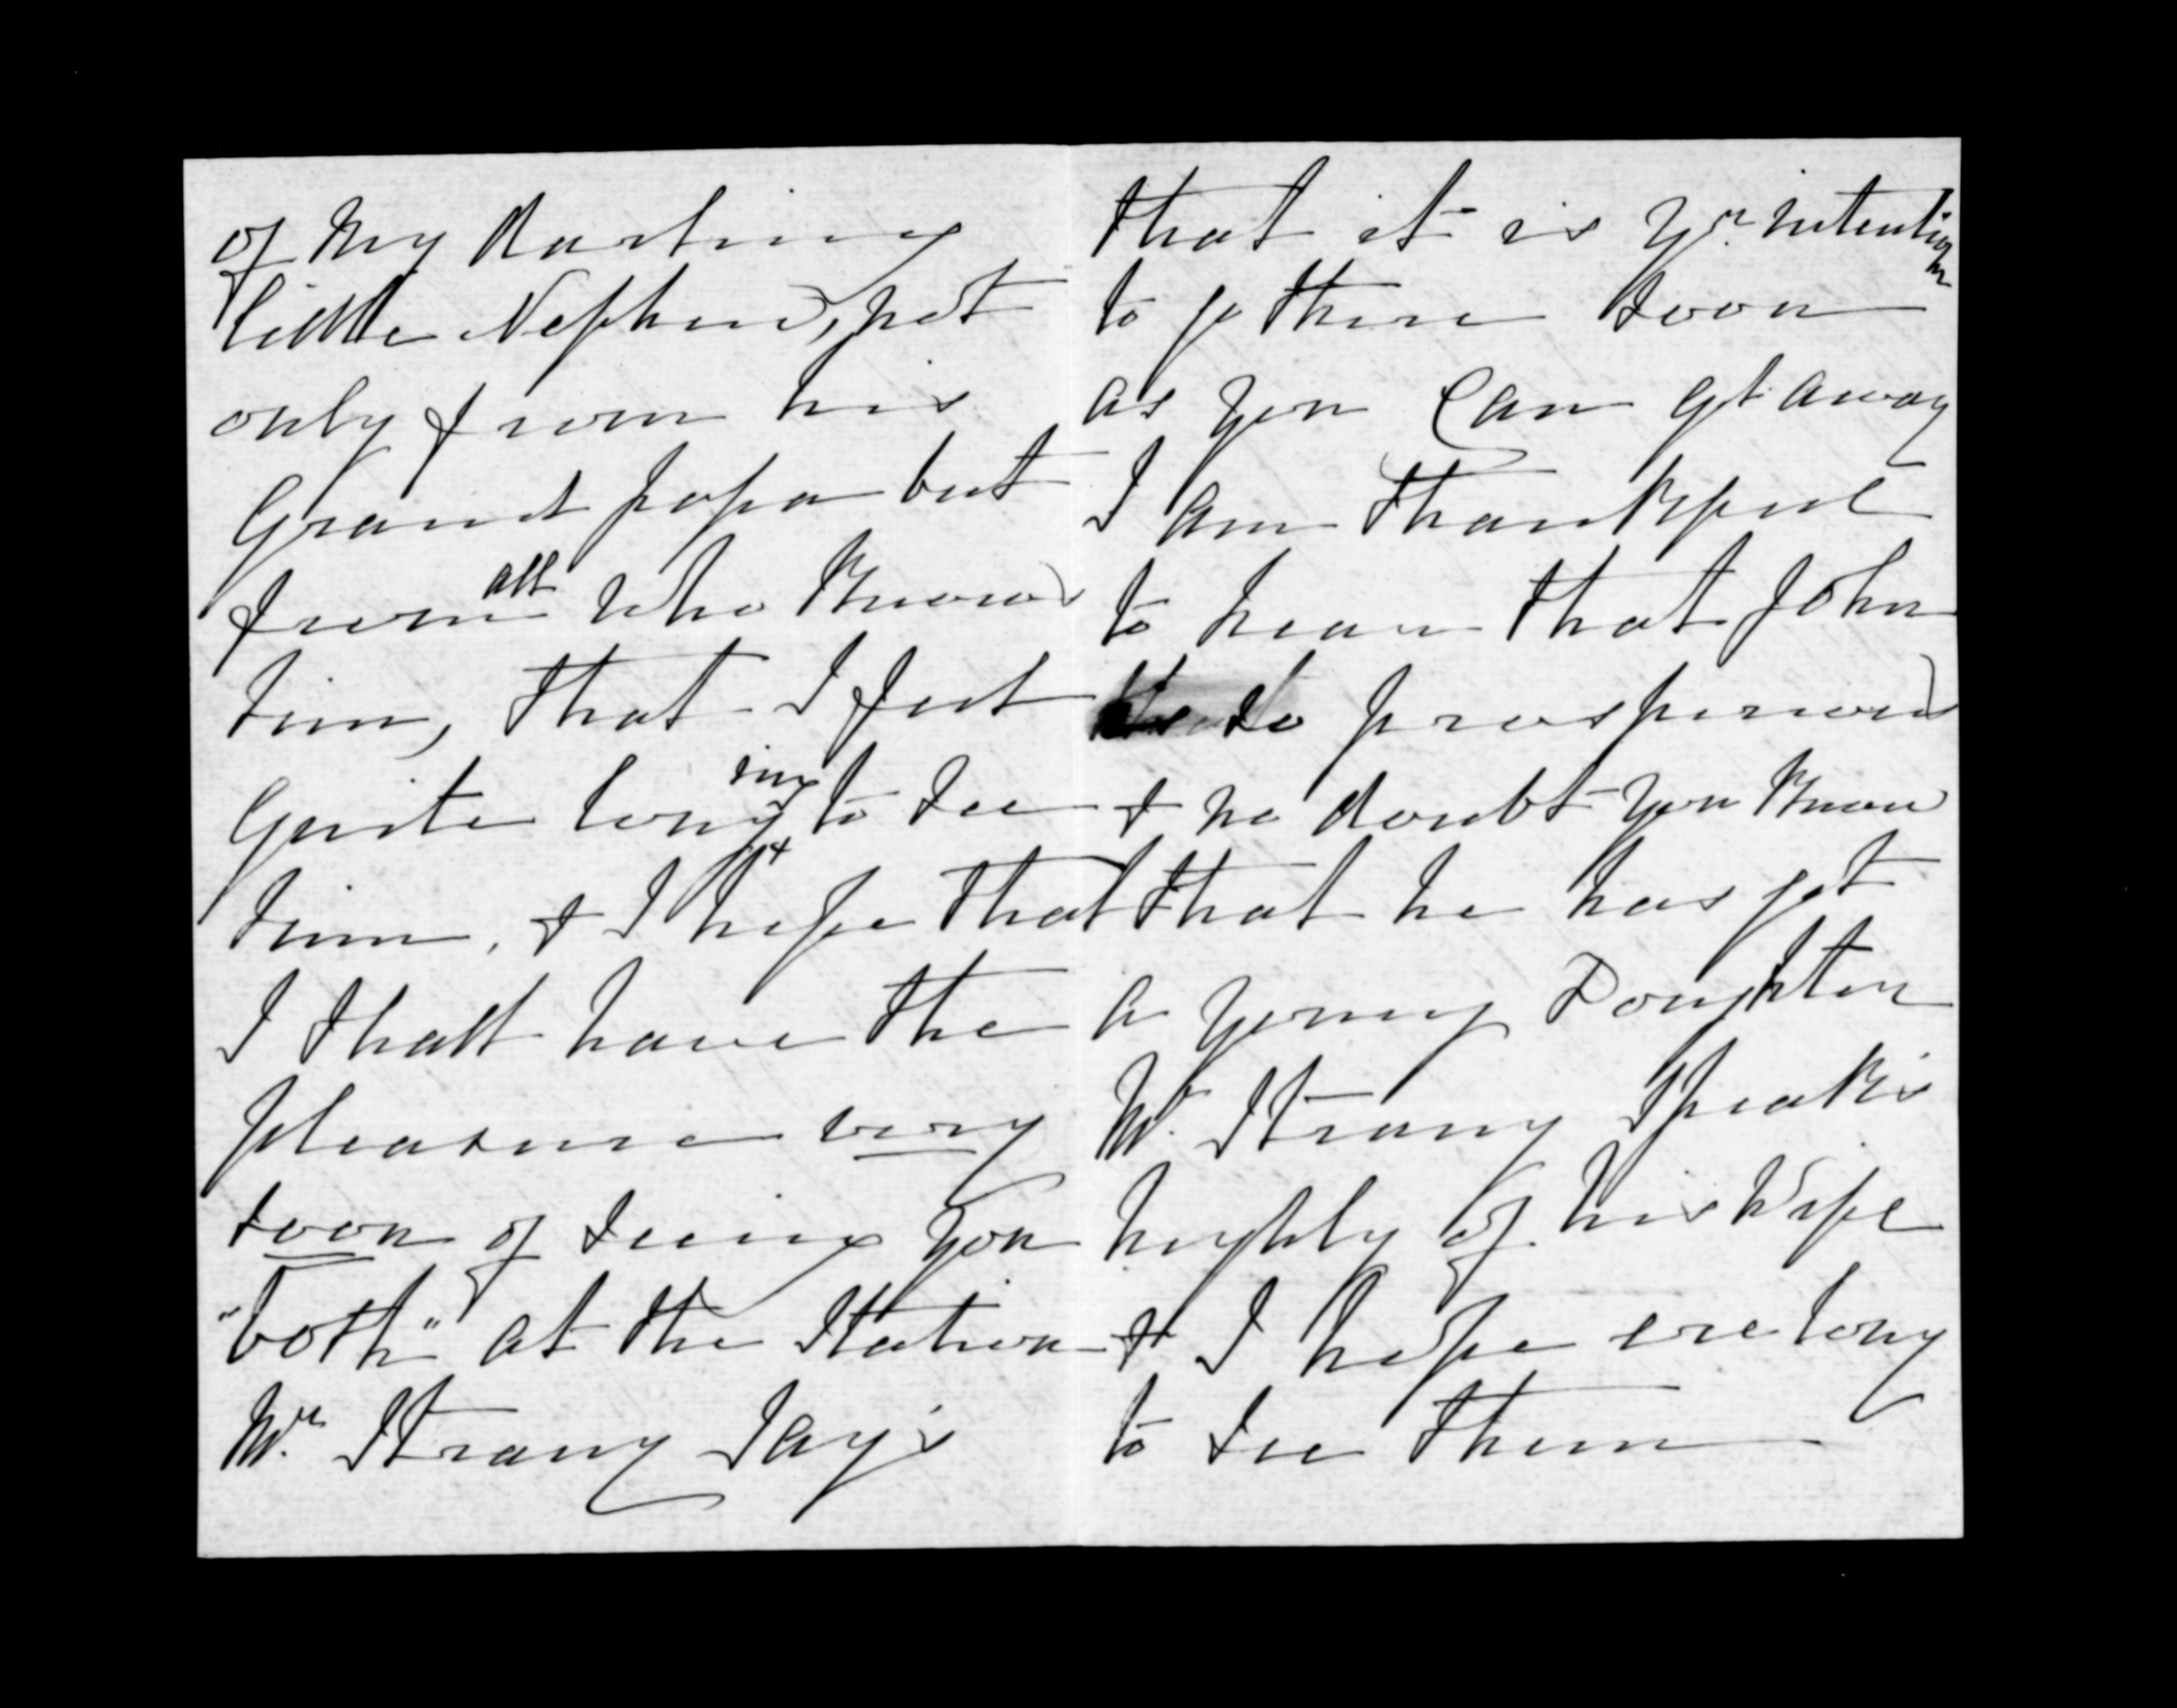 of my darling
little Nephew, not
only from his
Grand papa but
from all who know
him, that I feel
quite longing to see
him, & I hope that
I shall have the
pleasure very
soon of seeing you
"both" at the Station
Mr. Strang says
that it is yr. intention
to go there soon
as you can get away
I am thankful
to hear that John
is so prosperous
& no doubt you know
that he has got
a young Daughter
Mr. Strang speaks
highly of his Wife
& I hope ere long
to see them